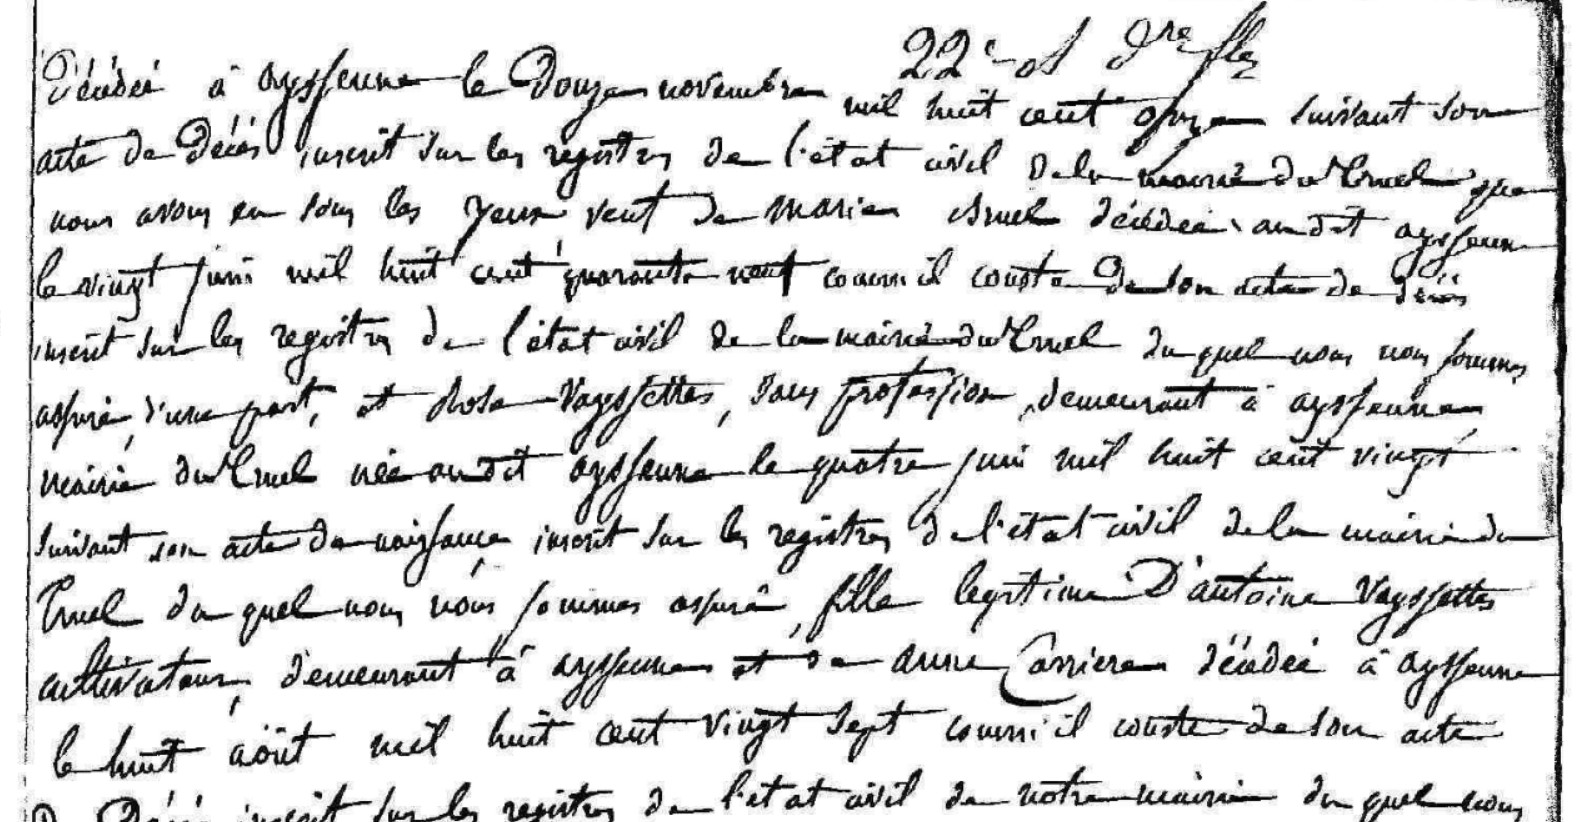 22e
Décédée à ayssenne le Douze novembre mil huit cent onze suivant son
acte de Décés inscrit sur les registres de l'état civil de la mairie du Truel que
nous avons eu sous les yeux veuf de marie Bruel décédée au dit ayssenne
le vingt juin mil huit cent quarante neuf comm'il conste de son acte de décés
inscrit sur les registres de l'état civil de la mairie du Truel du quel nous nous sommes
assuré, d'une part, et Rose Vayssettes, sans profession, demeurant à ayssenne,
mairie du Truel née au dit ayssenne le quatre juin mil huit cent vingt
suivant son acte de naissance, inscrit sur les registres de l'état civil de la mairie du
Truel du quel nous nous sommes assuré, fille legitime D'antoine Vayssettes
cultivateur, demeurant à ayssenne et de anne Carriere décédée à ayssenne
le huit août mil huit cent vingt sept comm'il conste de son acte
Décés inscrit sur les registres de l'état civil de notre mairie du quel nous